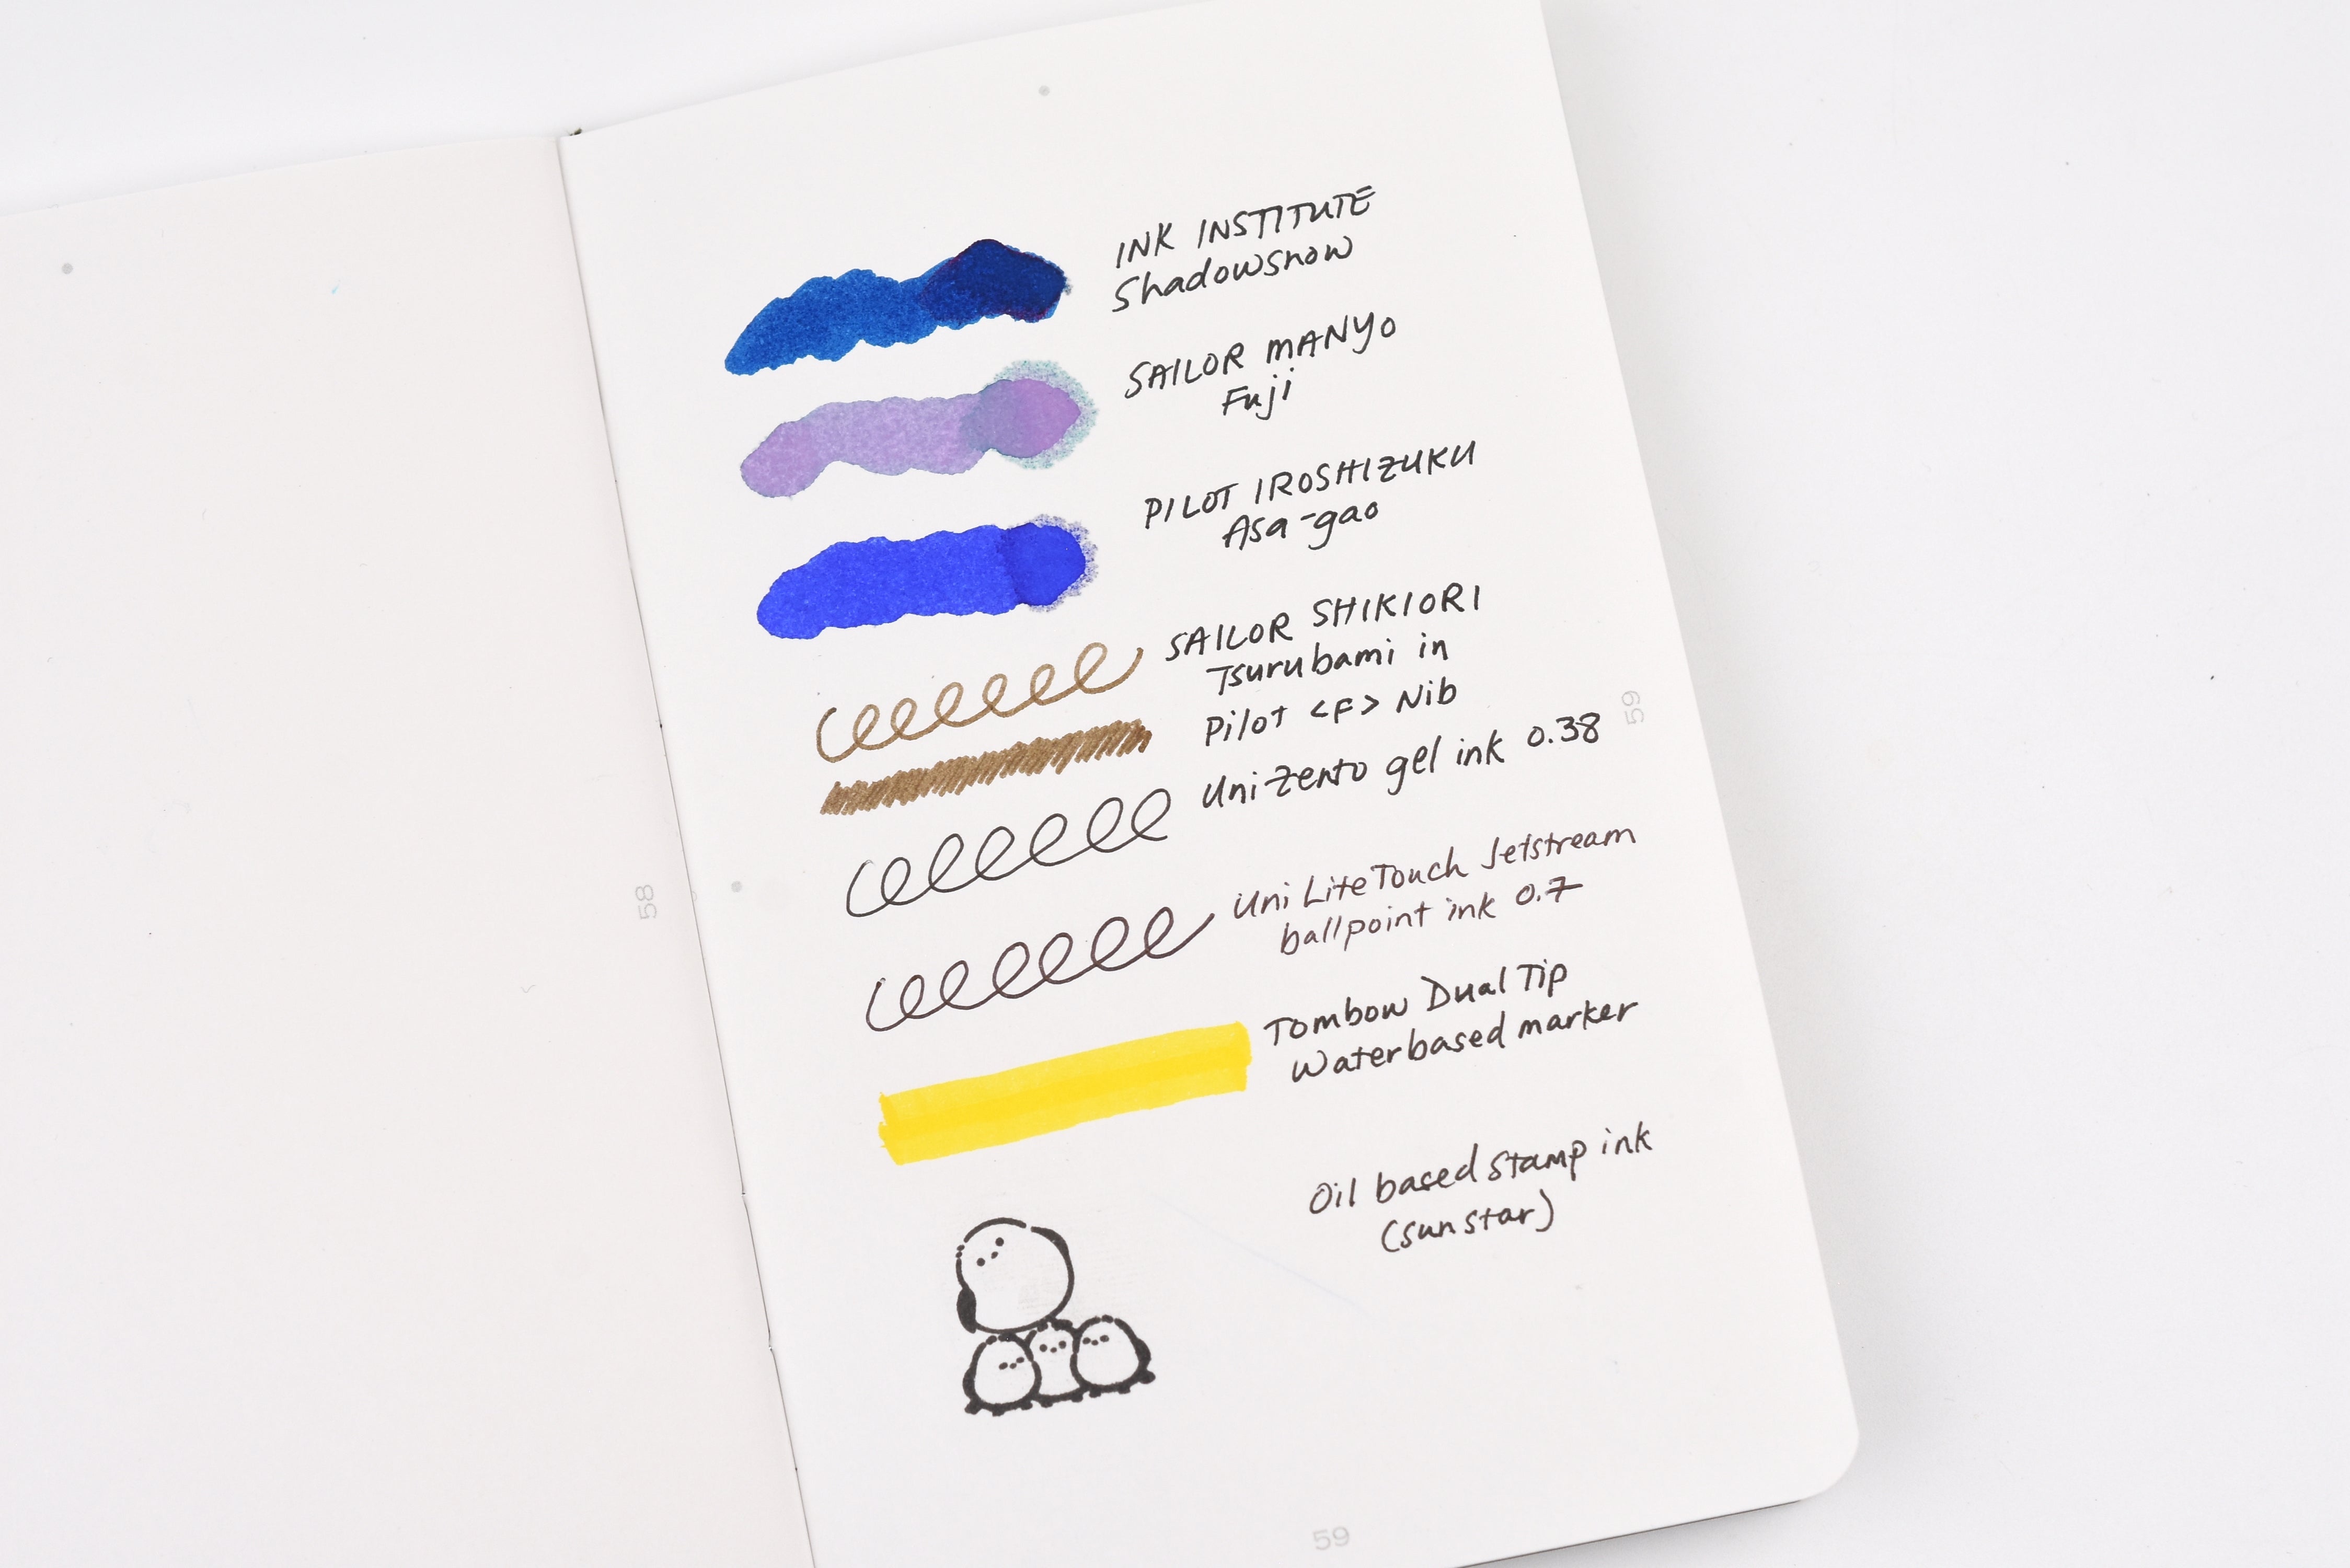 INK INSTITUTE
Shadowsnow
SAILOR MANYO
Fuji
PILOT IROSHIZUKU
Asa-gao
SAILOR SHIKIORI
Tsurubami in
Pilot <F> Nib
Uni Zento gel ink 0.38
Uni Lite Touch Jetstream
ballpoint ink 0.7
Tombow Dual Tip
Waterbased marker
Oil based stamp ink
(sun star)
58
59
59